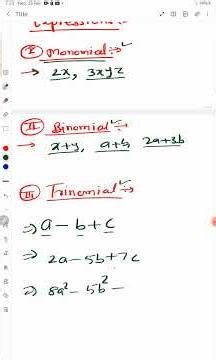 Expressions
Title
① Monomial :-
→ 2x, 3xyz
Ⅱ Binomial :-
→ x+y, a+b, 2a+3b
Ⅲ Trinomial :-
⇒ a - b + c
⇒ 2a - 5b + 7c
⇒ 8a² - 5b² -